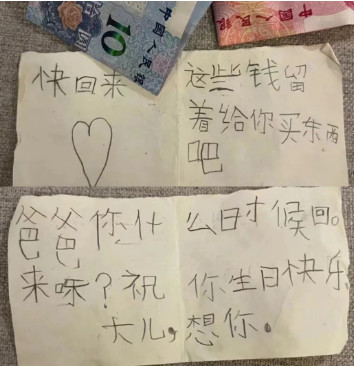 中国人民银
10
中国人民
快回来
这些钱留
着给你买东西
吧
爸爸你什么日寸候回。
来呀？祝你生日快乐
大儿，想你。